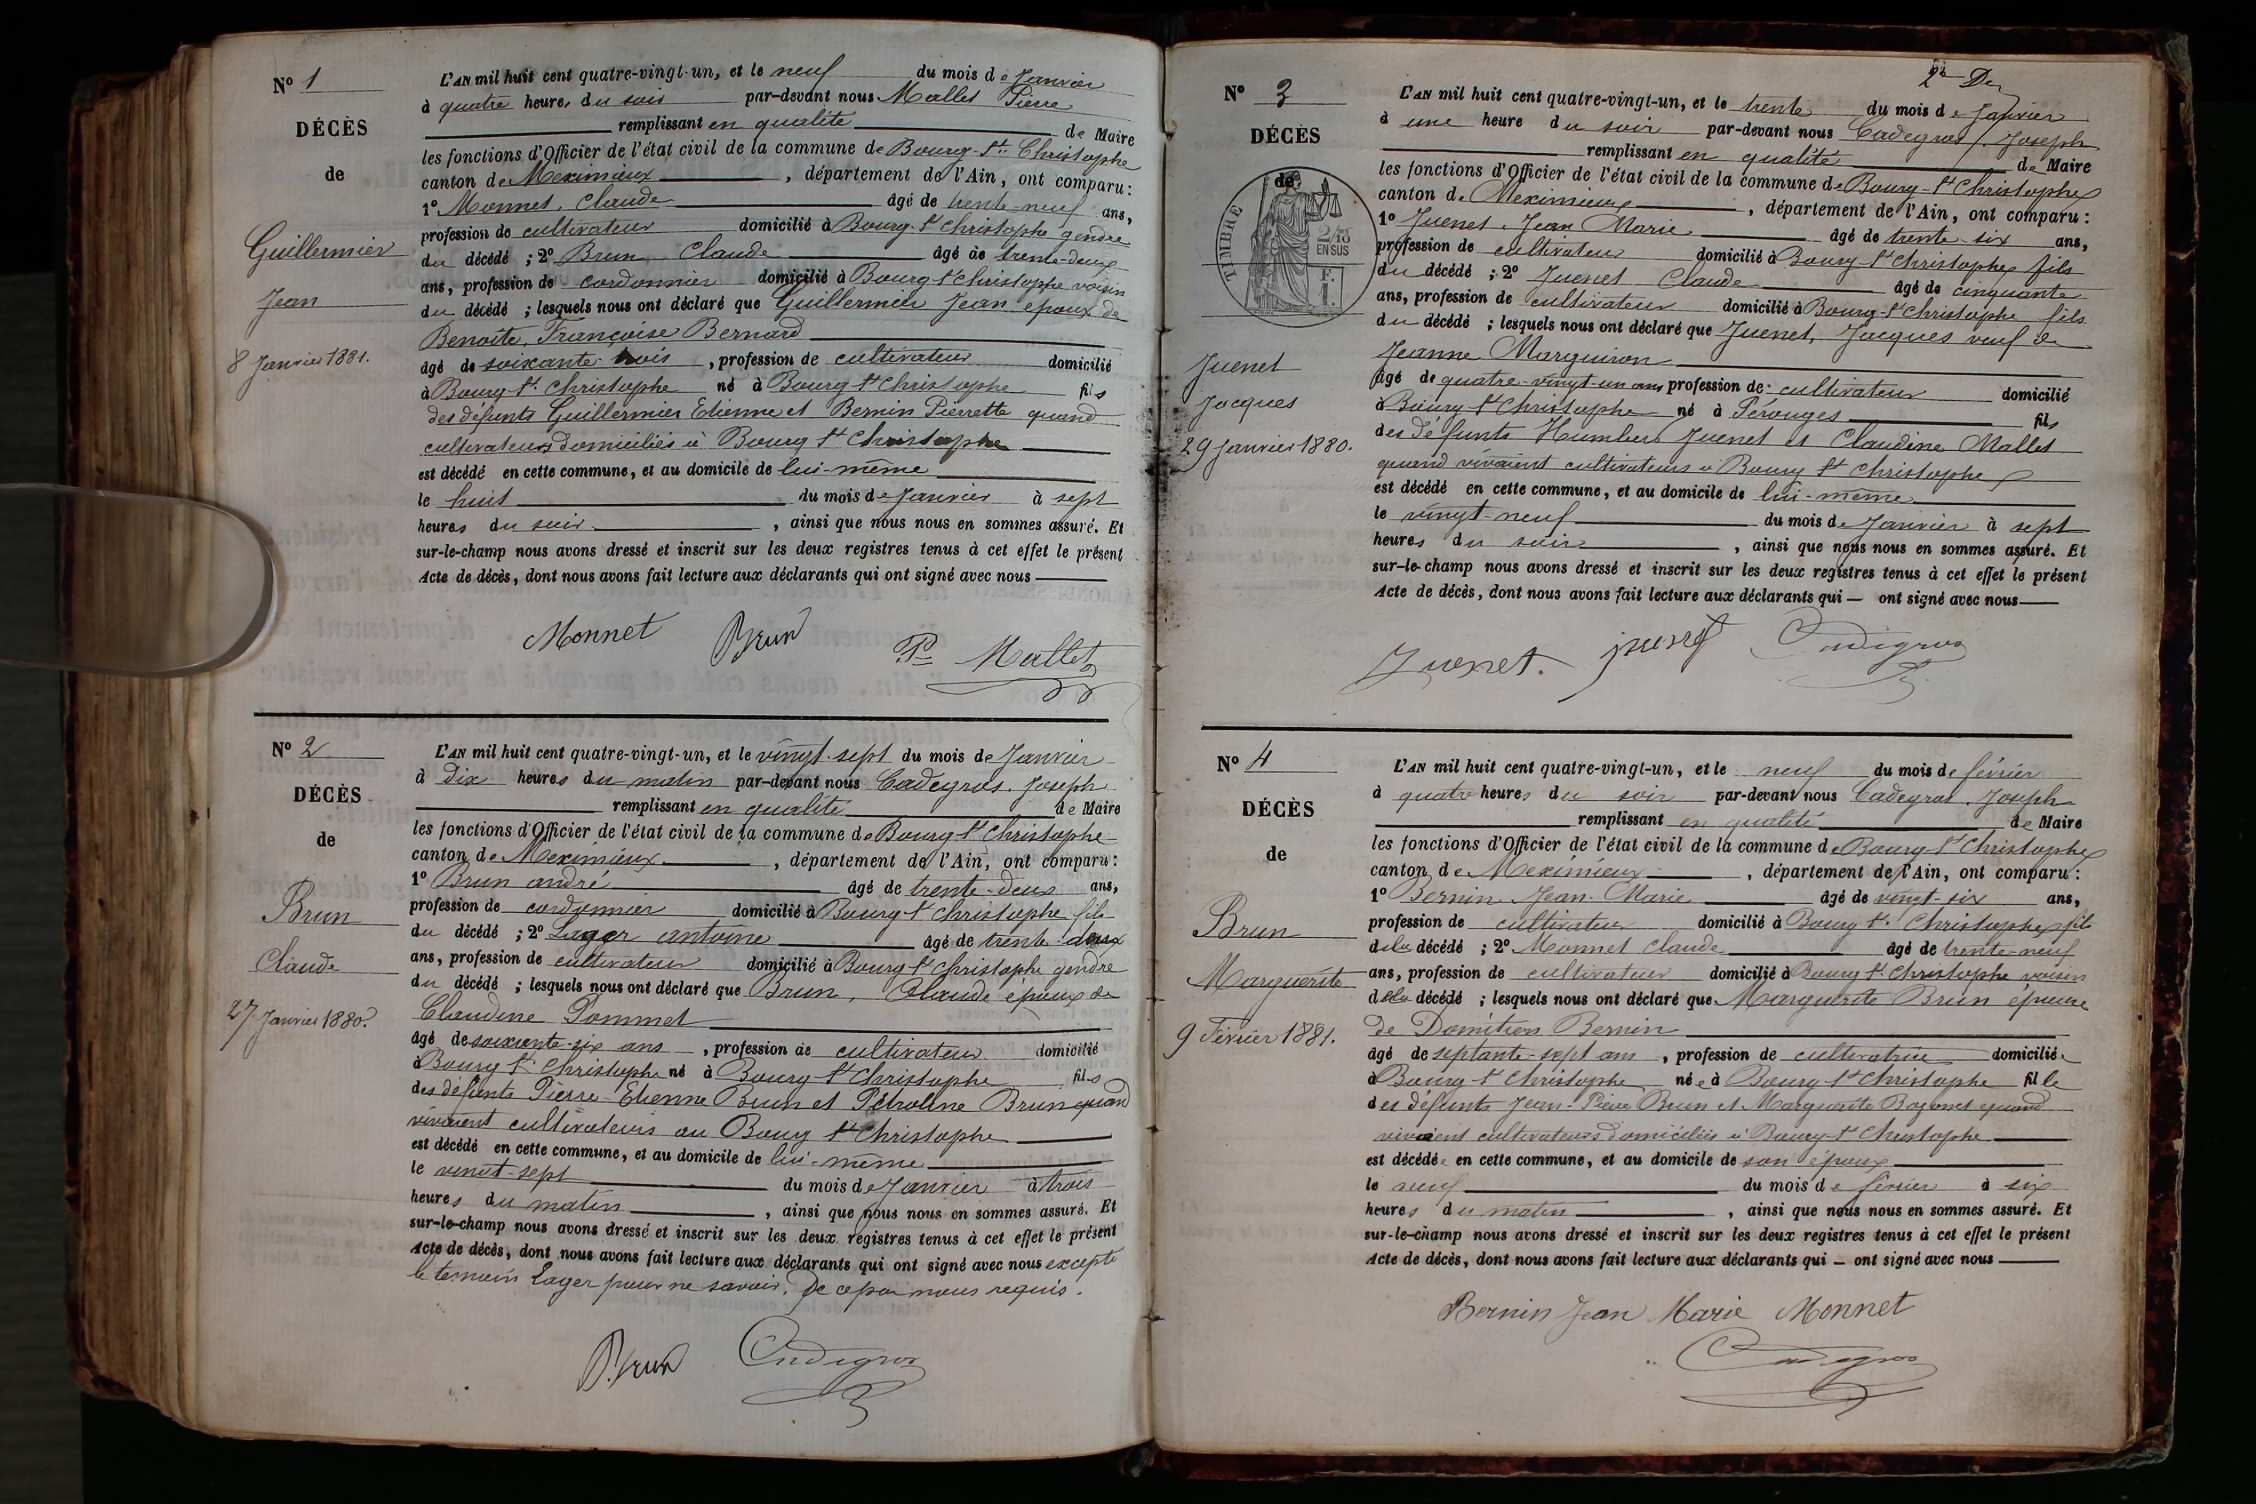 Nº 1
DÉCÈS
de
Guillermier
Jean
8 Janvier 1881.
L'AN mil huit cent quatre-vingt-un, et le neuf du mois de Janvier
à quatre heures du soir par-devant nous Mallet Pierre
remplissant en qualité de Maire
les fonctions d'Officier de l'état civil de la commune de Bourg-St Christophe
canton de Meximieux, département de l'Ain, ont comparu :
1º Monnet, Claude âgé de trente-neuf ans,
profession de cultivateur domicilié à Bourg-St Christophe gendre
du décédé ; 2º Brun Claude âgé de trente-deux
ans, profession de cordonnier domicilié à Bourg St Christophe voisin
du décédé ; lesquels nous ont déclaré que Guillermier Jean époux de
Benoîte, Françoise Bernard
âgé de soixante-trois, profession de cultivateur domicilié
à Bourg-St Christophe né à Bourg St Christophe fils
des défunts Guillermier Etienne et Bernin Pierrette quand
cultivateurs domiciliés à Bourg St Christophe
est décédé en cette commune, et au domicile de lui-même
le huit du mois de Janvier à sept
heures du soir, ainsi que nous nous en sommes assuré. Et
sur-le-champ nous avons dressé et inscrit sur les deux registres tenus à cet effet le présent
Acte de décès, dont nous avons fait lecture aux déclarants qui ont signé avec nous
Monnet Brun Pre Mallet
Nº 2
DÉCÈS
de
Brun
Claude
27 Janvier 1880.
L'AN mil huit cent quatre-vingt-un, et le vingt-sept du mois de Janvier
à dix heures du matin par-devant nous Cadegros. Joseph
remplissant en qualité de Maire
les fonctions d'Officier de l'état civil de la commune de Bourg-St Christophe
canton de Meximieux, département de l'Ain, ont comparu :
1º Brun andré âgé de trente-deux ans,
profession de cordonnier domicilié à Bourg St Christophe fils
du décédé ; 2º Lager antoine âgé de trente-deux
ans, profession de cultivateur domicilié à Bourg St Christophe gendre
du décédé ; lesquels nous ont déclaré que Brun, Claude époux de
Claudine Pommet
âgé de soixante-six ans, profession de cultivateur domicilié
à Bourg St Christophe né à Bourg St Christophe fils
des défunts Pierre-Etienne Brun et Pétroline Brun quand
vivaient cultivateurs au Bourg St Christophe
est décédé en cette commune, et au domicile de lui-même
le vingt-sept du mois de Janvier à trois
heures du matin, ainsi que nous nous en sommes assuré. Et
sur-le-champ nous avons dressé et inscrit sur les deux registres tenus à cet effet le présent
Acte de décès, dont nous avons fait lecture aux déclarants qui ont signé avec nous excepté
le témoin Lager pour ne savoir, De ce par nous requis.
Brun Cadegros
2e
Nº 3
DÉCÈS
de
TIMBRE
2/10
EN SUS
Juenet
Jacques
29 Janvier 1880.
L'AN mil huit cent quatre-vingt-un, et le trente du mois de Janvier
à une heure du soir par-devant nous Cadegros, Joseph
remplissant en qualité de Maire
les fonctions d'Officier de l'état civil de la commune de Bourg-St Christophe
canton de Meximieux, département de l'Ain, ont comparu :
1º Juenet, Jean Marie âgé de trente-six ans,
profession de cultivateur domicilié à Bourg St Christophe fils
du décédé ; 2º Juenet Claude âgé de cinquante
ans, profession de cultivateur domicilié à Bourg-St Christophe fils
du décédé ; lesquels nous ont déclaré que Juenet, Jacques veuf de
Jeanne Marguiron
âgé de quatre-vingt-un ans profession de cultivateur domicilié
à Bourg St Christophe né à Pérouges fils
des défunts Humbert Juenet et Claudine Mallet
quand vivaient cultivateurs à Bourg St Christophe
est décédé en cette commune, et au domicile de lui-même
le vingt-neuf du mois de Janvier à sept
heures du soir, ainsi que nous nous en sommes assuré. Et
sur-le-champ nous avons dressé et inscrit sur les deux registres tenus à cet effet le présent
Acte de décès, dont nous avons fait lecture aux déclarants qui — ont signé avec nous
Juenet. juenet Cadegros
Nº 4
DÉCÈS
de
Brun
Marguerite
9 Février 1881.
L'AN mil huit cent quatre-vingt-un, et le neuf du mois de février
à quatre heures du soir par-devant nous Cadegros. Joseph
remplissant en qualité de Maire
les fonctions d'Officier de l'état civil de la commune de Bourg-St Christophe
canton de Meximieux, département de l'Ain, ont comparu :
1º Bernin Jean-Marie âgé de vingt-six ans,
profession de cultivateur domicilié à Bourg St Christophe fils
de la décédé ; 2º Monnet Claude âgé de trente-neuf
ans, profession de cultivateur domicilié à Bourg St Christophe voisin
de la décédé ; lesquels nous ont déclaré que Marguerite Brun épouse
de Domitien Bernin
âgé de septante-sept ans, profession de cultivatrice domiciliée
à Bourg-St Christophe née à Bourg-St Christophe fille
des défunts Jean-Pierre Brun et Marguerite Bozonet quand
vivaient cultivateurs domiciliés à Bourg-St Christophe
est décédée en cette commune, et au domicile de son époux
le neuf du mois de février à six
heures du matin, ainsi que nous nous en sommes assuré. Et
sur-le-champ nous avons dressé et inscrit sur les deux registres tenus à cet effet le présent
Acte de décès, dont nous avons fait lecture aux déclarants qui — ont signé avec nous
Bernin Jean Marie Monnet
Cadegros